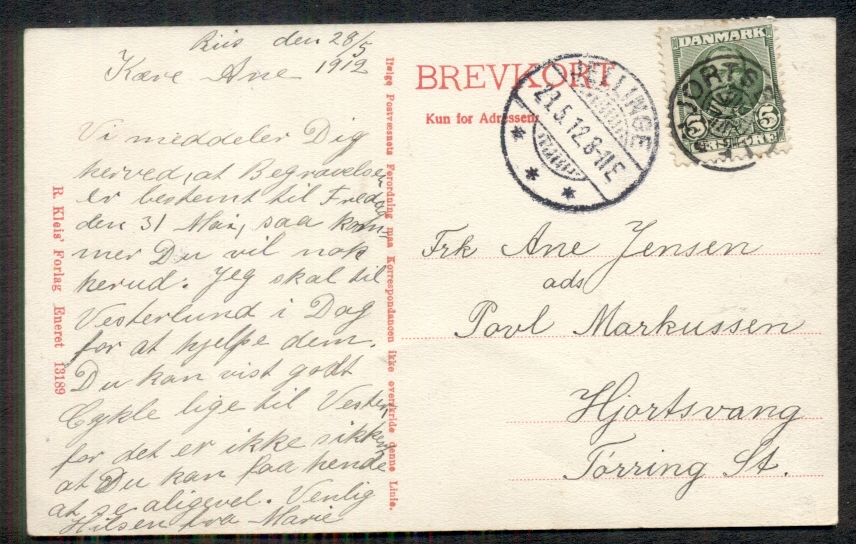 Riis den 28/5
1912
Kære Ane
Vi meddeler Dig
herved, at Begravelsen
er bestemt til Fredag
den 31 Mai, saa kom
mer Du vil nok
herud. Jeg skal til
Vesterlund i Dag
for at hjelpe dem.
Du kan vist godt
Cykle lige til Vester,
for det er ikke sikkert
at Du kan faa hende
at se aligevel. Venlig
Hilsen fra Marie
R. Kleis' Forlag Eneret 13189
Ifølge Postvæsnets Forordning maa Korrespondancen ikke overskride denne Linie.
BREVKORT
Kun for Adressen
JELLINGE
28.5.12.8-11E
DANMARK
5 5
HJORTSV
Frk Ane Jensen
ads
Povl Markussen
Hjortsvang
Tørring St.